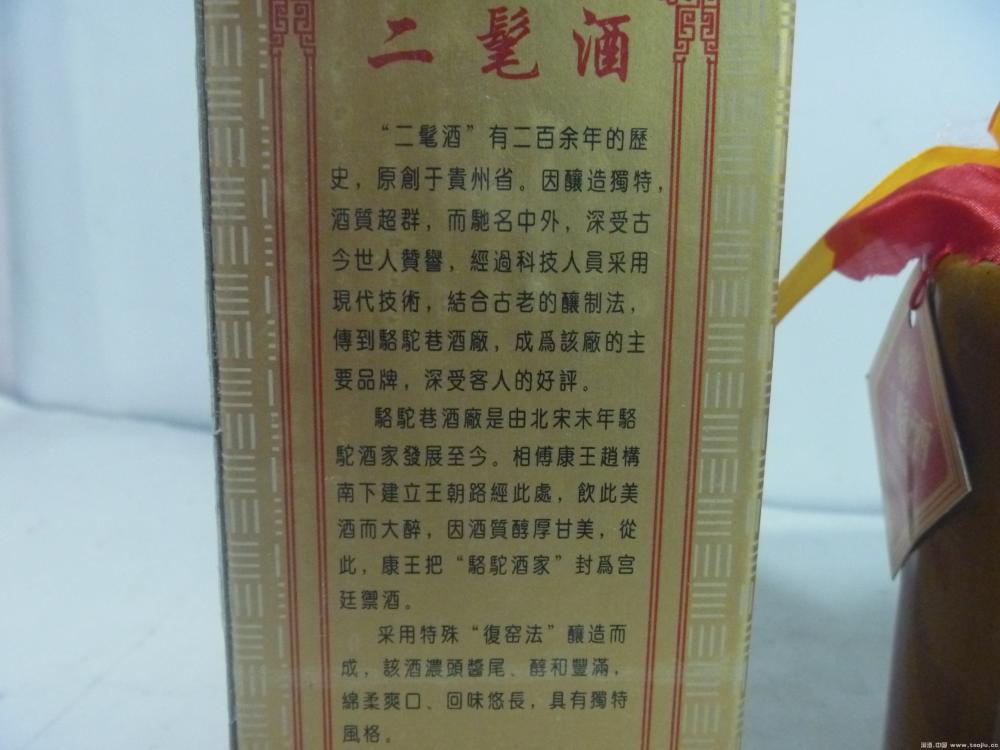 二髦酒
“二髦酒”有二百余年的歷
史，原創于貴州省。因釀造獨特，
酒質超群，而馳名中外，深受古
今世人贊譽，經過科技人員采用
現代技術，結合古老的釀制法，
傳到駱駝巷酒廠，成爲該廠的主
要品牌，深受客人的好評。
駱駝巷酒廠是由北宋末年駱
駝酒家發展至今。相傅康王趙構
南下建立王朝路經此處，飲此美
酒而大醉，因酒質醇厚甘美，從
此，康王把“駱駝酒家”封爲宫
廷禦酒。
采用特殊“復窑法”釀造而
成，該酒濃頭醬尾、醇和豐滿，
綿柔爽口、回味悠長，具有獨特
風格。
淘酒.中國 www.taojiu.cn